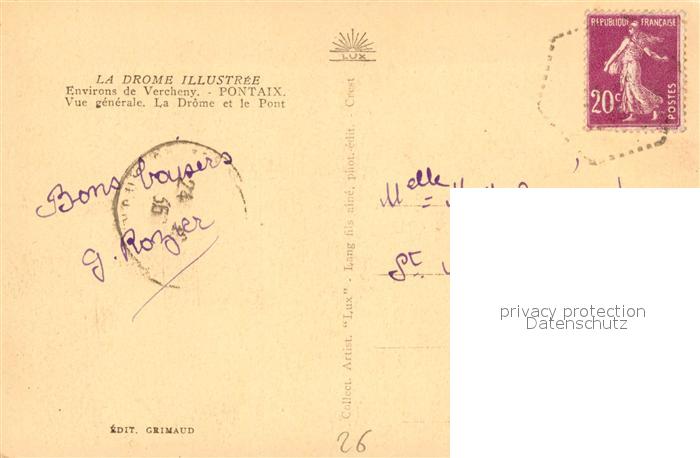 LUX
RÉPUBLIQUE FRANÇAISE
20c
POSTES
LA DROME ILLUSTRÉE
Environs de Vercheny. - PONTAIX.
Vue générale. La Drôme et le Pont
Bons baisers
G. Rozier
24
36
Melle
St
Collect. Artist. "Lux" - Lang fils aîné, phot.-édit. - Crest
privacy protection
Datenschutz
ÉDIT. GRIMAUD
26